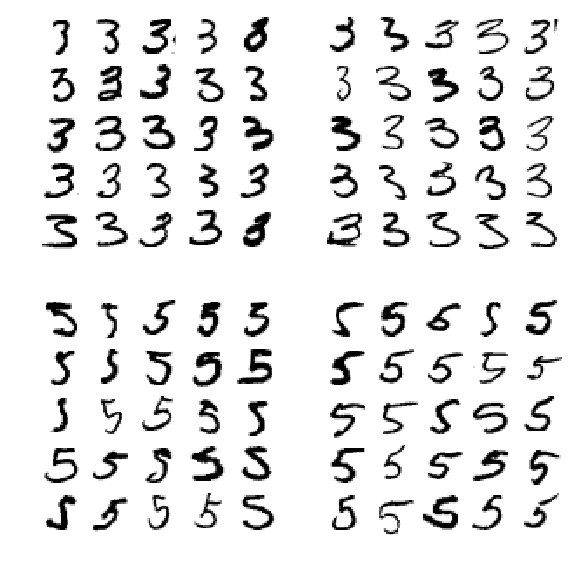 3 3 3 3 8 3 3 3 3 3
3 3 3 3 3 3 3 3 3 3
3 3 3 3 3 3 3 3 3 3
3 3 3 3 3 3 3 3 3 3
3 3 3 3 8 3 3 3 3 3
5 5 5 5 5 5 5 5 5 5
5 5 5 5 5 5 5 5 5 5
5 5 5 5 5 5 5 5 5 5
5 5 5 5 5 5 5 5 5 5
5 5 5 5 5 5 5 5 5 5